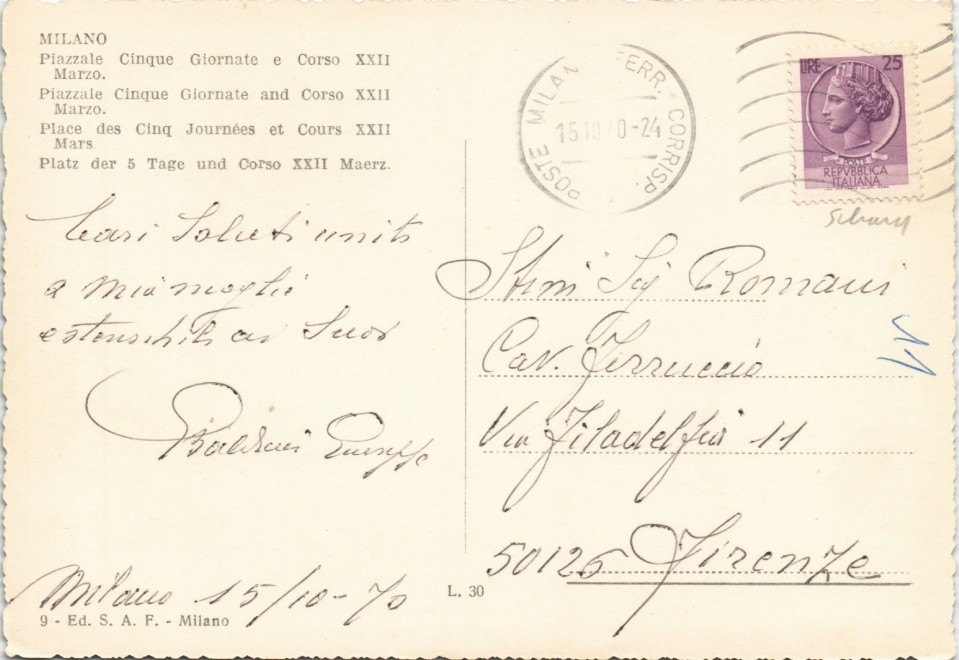 MILANO
Piazzale Cinque Giornate e Corso XXII
Marzo.
Piazzale Cinque Giornate and Corso XXII
Marzo.
Place des Cinq Journées et Cours XXII
Mars
Platz der 5 Tage und Corso XXII Maerz.
POSTE MILAN FERR. CORRISP.
15 10 70-24
LIRE 25
POSTE
REPVBBLICA
ITALIANA
Cari Saluti uniti
a mia moglie
estensibili ai Suoi
Baldini
Milano 15/10-70
9 - Ed. S. A. F. - Milano
L. 30
Sig Romani
Cav. Ferruccio
Via Filadelfia 11
50126 Firenze
11